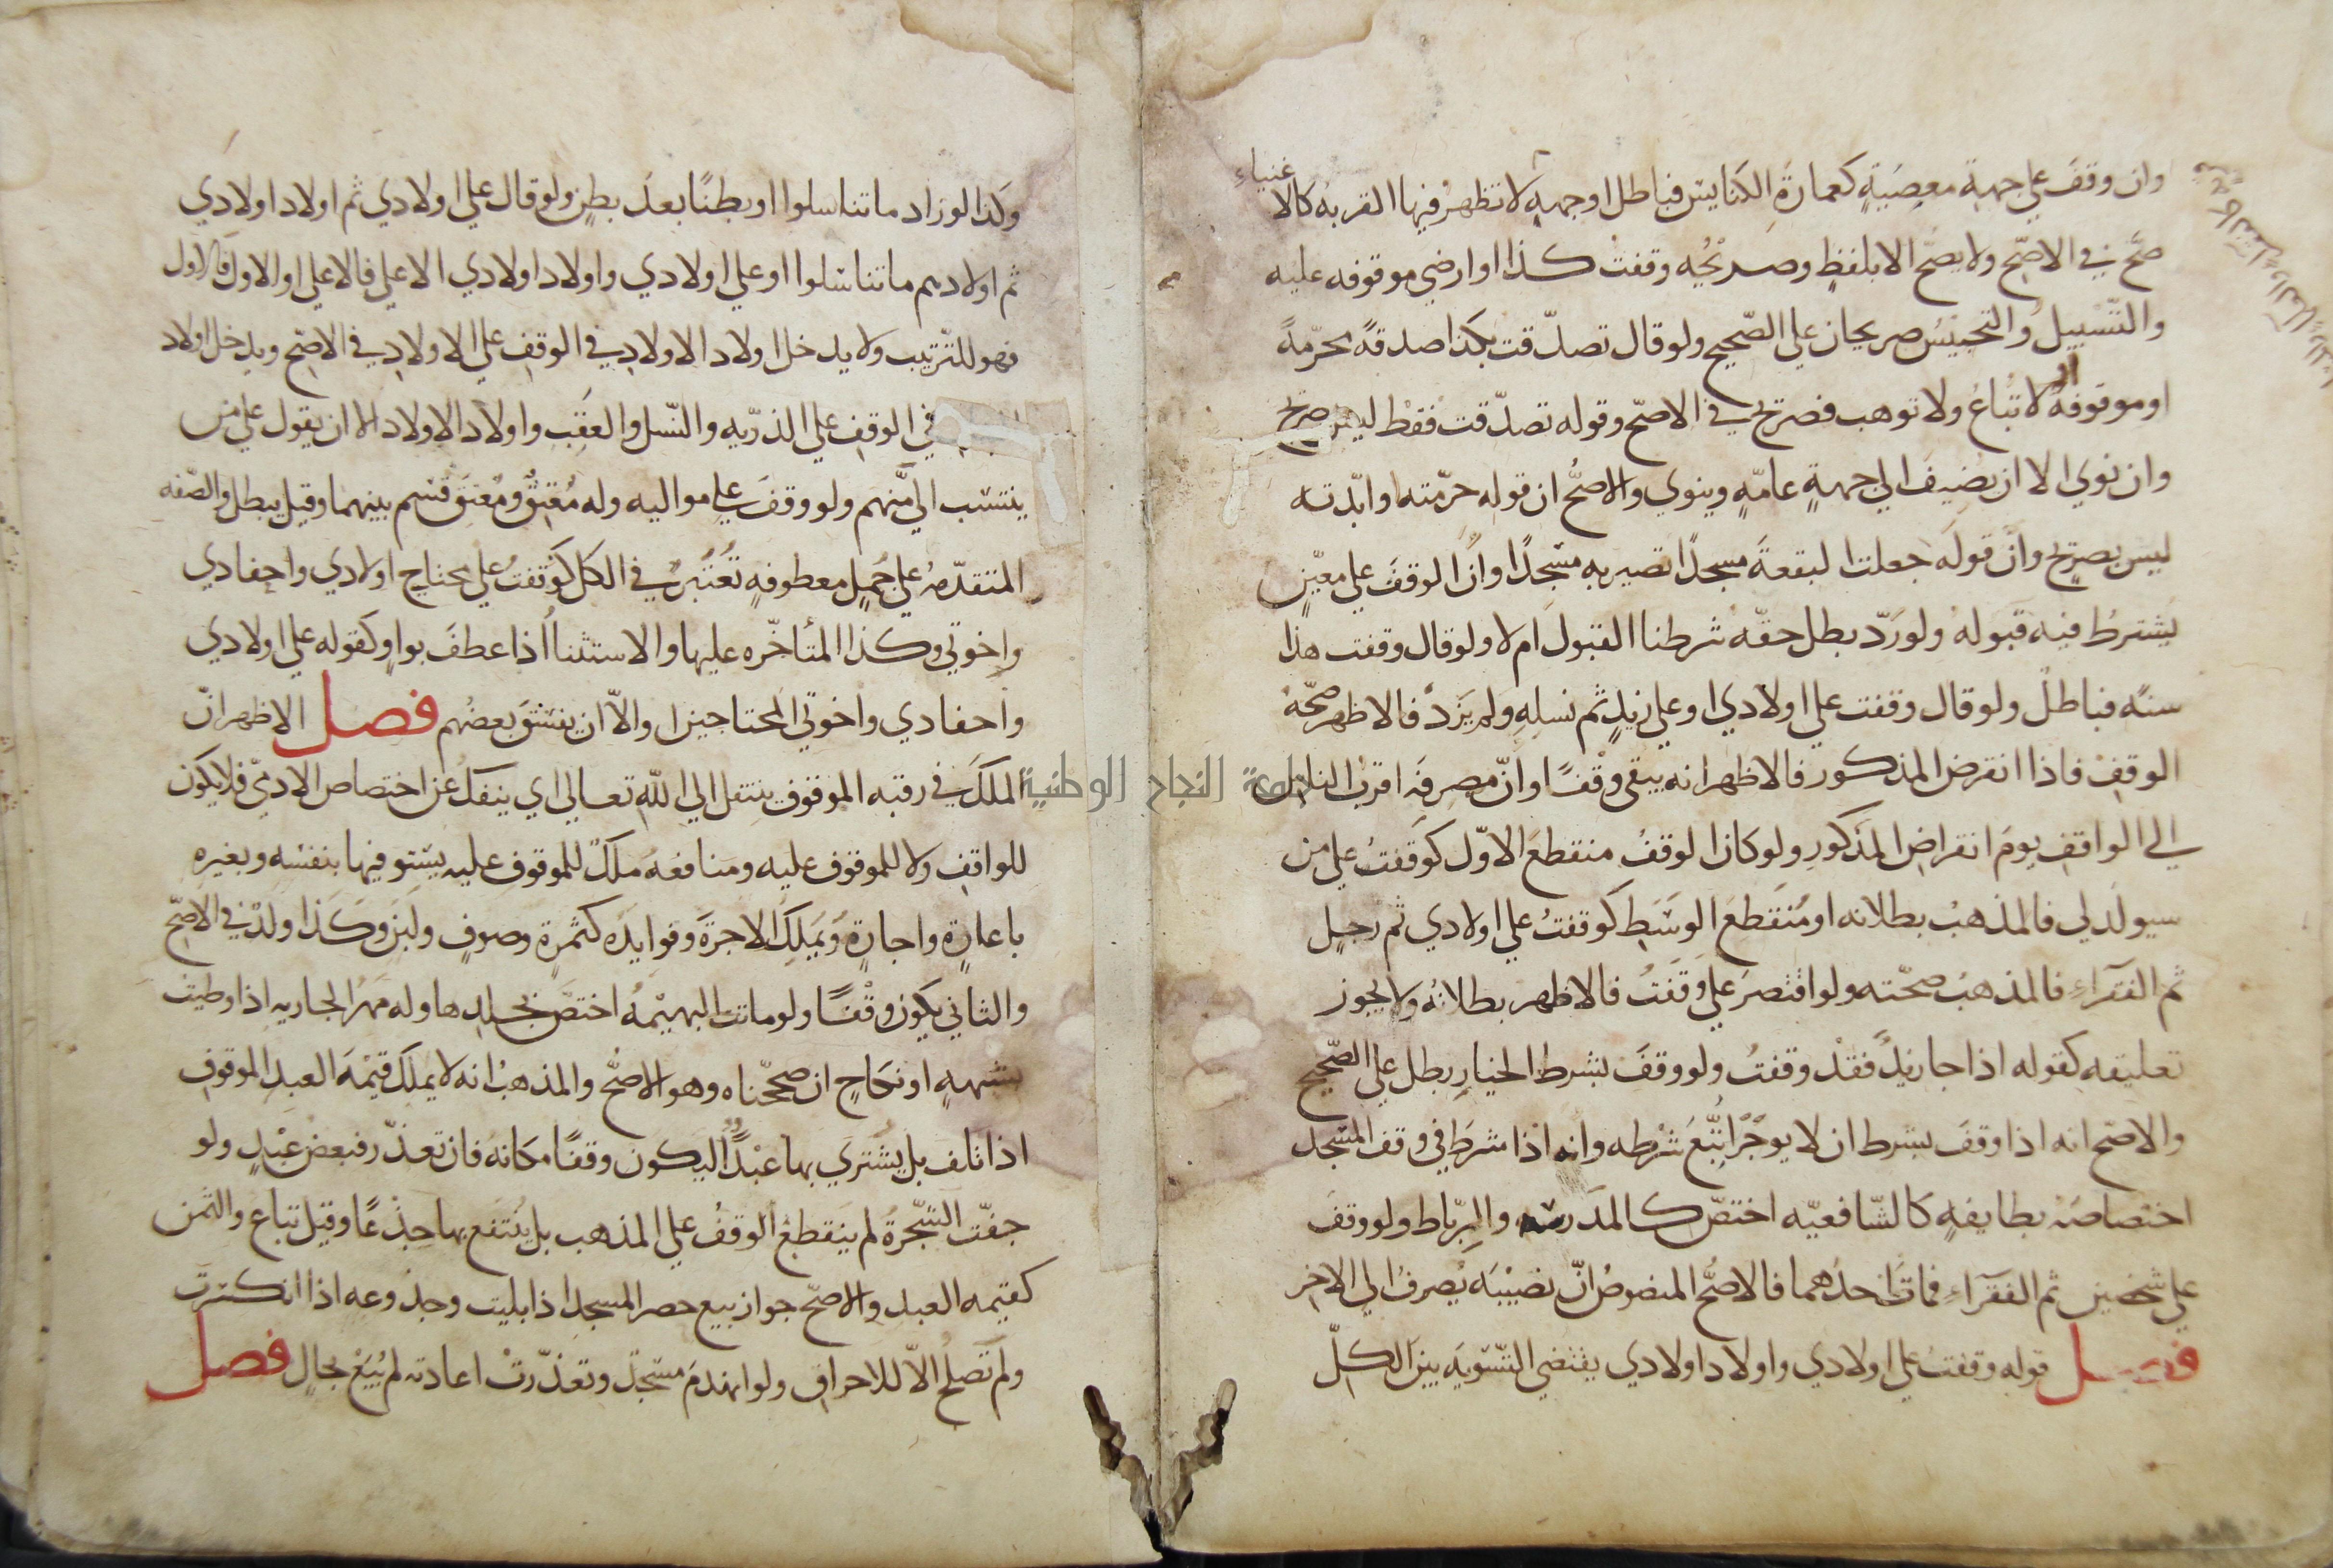 وان وقف علي جهة معصية كعمارة الكنايس فباطل او جهة لا تظهر فيها القربه كالاغنياء
صح في الاصح ولا يصح الا بلفظ وصريحه وقفت كذا او ارضي موقوفه عليه
والتسبيل والتحبيس صريحان علي الصحيح ولو قال تصدقت بكذا صدقة محرمة
او موقوفة او لا تباع ولا توهب فصريح في الاصح وقوله تصدقت فقط ليس بصريح
وان نوي الا ان يضيف الي جهة عامة وينوي والاصح ان قوله حرمته او ابدته
ليس بصريح وان قوله جعلت البقعة مسجدا تصير به مسجدا وان الوقف علي معين
يشترط فيه قبوله ولو رد بطل حقه شرطنا القبول ام لا ولو قال وقفت هذا
سنه فباطل ولو قال وقفت علي اولادي او علي زيد ثم نسله ولم يزد فالاظهر صحة
الوقف فاذا انقرض المذكور فالاظهر انه يبقي وقفا وان مصرفه اقرب الناس
الي الواقف يوم انقراض المذكور ولو كان الوقف منقطع الاول كوقفت علي من
سيولد لي فالمذهب بطلانه او منقطع الوسط كوقفت علي اولادي ثم رجل
ثم الفقراء فالمذهب صحته ولو اقتصر علي وقفت فالاظهر بطلانه ولا يجوز
تعليقه كقوله اذا جا زيد فقد وقفت ولو وقف بشرط الخيار بطل علي الصحيح
والاصح انه اذا وقف بشرط ان لا يوجر اتبع شرطه وانه اذا شرط في وقف المسجد
اختصاصه بطايفة كالشافعيه اختص كالمدرسه والرباط ولو وقف
علي شخصين ثم الفقراء فمات احدهما فالاصح المنصوص ان نصيبه يصرف الي الاخر
فصل قوله وقفت علي اولادي واولاد اولادي يقتضي التسويه بين الكل
وكذا لو زاد ما تناسلوا او بطنا بعد بطن ولو قال علي اولادي ثم اولاد اولادي
ثم اولادهم ما تناسلوا او علي اولادي واولاد اولادي الاعلي فالاعلي او الاول فالاول
فهو للترتيب ولا يدخل اولاد الاولاد في الوقف علي الاولاد في الاصح ويدخل اولاد
في الوقف علي الذريه والنسل والعقب واولاد الاولاد الا ان يقول علي من
ينتسب الي منهم ولو وقف علي مواليه وله معتق ومعتق قسم بينهما وقيل يبطل والصفه
المتقدمه علي جمل معطوفة تعتبر في الكل كوقفت علي محتاج اولادي واحفادي
واخوتي وكذا المتاخره عليها والاستثناء اذا عطف بواو كقوله علي اولادي
واحفادي واخوتي المحتاجين او الا ان يفسق بعضهم فصل الاظهر ان
الملك في رقبه الموقوف ينتقل الي الله تعالي اي ينفك عن اختصاص الادمي فلا يكون
للواقف ولا للموقوف عليه ومنافعه ملك للموقوف عليه يستوفيها بنفسه وبغيره
باعارة واجارة ويملك الاجرة وفوايده كثمرة وصوف ولبن وكذا ولد في الاصح
والثاني يكون وقفا ولو ماتت البهيمه اختص بجلدها وله مهر الجاريه اذا وطيت
بشبهة او نكاح ان صححناه وهو الاصح والمذهب انه لا يملك قيمة العبد الموقوف
اذا تلف بل يشتري بها عبدا ليكون وقفا مكانه فان تعذر فبعض عبد ولو
جفت الشجرة لم ينقطع الوقف علي المذهب بل ينتفع بها جذعا وقيل تباع والثمن
كقيمه العبد والاصح جواز بيع حصر المسجد اذا بليت وجذوعه اذا انكسرت
ولم تصلح الا للاحراق ولو انهدم مسجد وتعذرت اعادته لم يبع بحال فصل
جامعة النجاح الوطنية